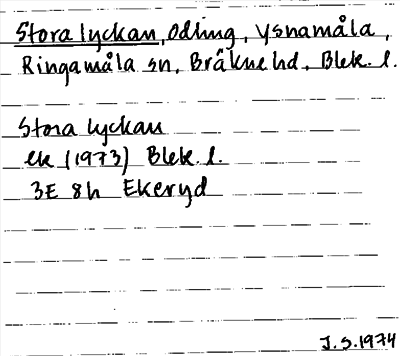 Stora lyckan, odling, Ysnamåla,
Ringamåla sn, Bräkne hd, Blek. l.
Stora lyckan
ek (1973) Blek. l.
3E 8h Ekeryd
J. S. 1974